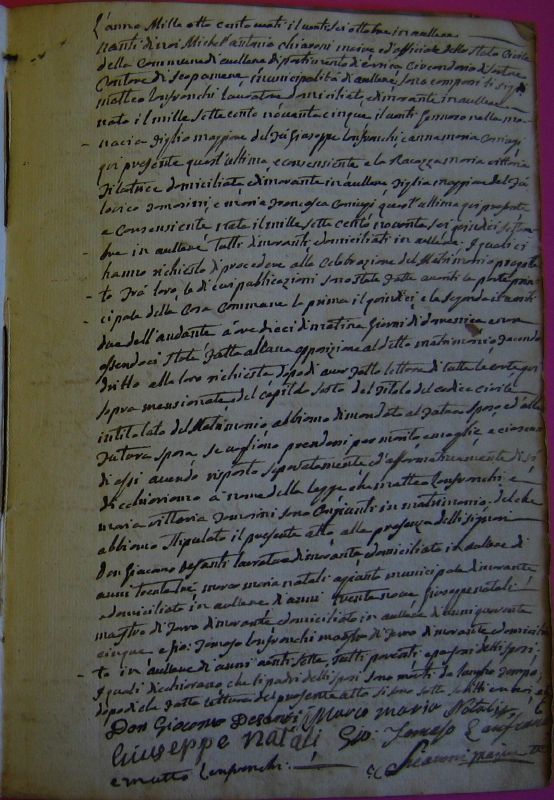 L'anno Mille otto cento venti il venti sei ottobre in aullene
nanti di noi Michel'antonio chiaroni maire ed officiale dello Stato Civile
della Commune di aullene dipartimento di Corsica Circondario di Sartene
Cantone di Scopamene municipalità di aullene, sono comparsi li sig.ri
matteo lanfranchi lavoratore domiciliato e dimorante in aullene
nato il mille sette cento novanta cinque, il venti Gennaro nella
nacia figlio maggiore del fù Giuseppe lanfranchi e anna maria
qui presente quest'ultima e consensiente e la Ragazza maria vittoria
filatrice domiciliata e dimorante in aullene figlia maggiore del fù
e maria francesca quest'ultima qui presente
e Consensiente nata il mille sette cento novanta sei quindici settem
bre in aullene tutti dimoranti e domiciliati in aullene. I quali ci
hanno richiesto di procedere alla Celebrazione del Matrimonio progetta
to frà loro, le di cui publicazioni sono state fatte avanti la porta prin
cipale della Casa Commune la prima il quindici, e la seconda il venti
due dell'andante a ore dieci di matina Giorni di domenica e non
essendoci stata fatta alcuna opposizione al detto matrimonio facendo
dritto alla loro richiesta dopo di aver fatto lettura di tutte le carte qui
sopra mensionate e del capitolo sesto del titolo del codice civile
intitolato del Matrimonio abbiamo dimandato al futuro sposo, ed alla
futura sposa se vogliono prendersi per marito e moglie e ciascun
di essi avendo risposto separatamente ed affermativamente di sì
dichiariamo a nome della legge che matteo lanfranchi e
maria vittoria sono Congiunti in matrimonio. del che
abbiamo stipulato il presente atto alla presenza delli signori
Don Giacomo Desanti lavoratore dimorante e domiciliato in aullene di
anni trenta marco maria natali municipale dimorante
e domiciliato in aullene di anni trenta nove giuseppe natali
mastro di ferro dimorante e domiciliato in aullene di anni quaranta
cinque e Gio: Tomaso lanfranchi mastro di ferro dimorante e domicilia
to in aullene di anni venti sette, tutti parenti e paesani delli sposi.
I quali dichiarano che li padri delli sposi sono morti da lungo tempo,
dopo di che fatto lettura del presente atto si sono sotto scritti con noi
Don Giacomo Desanti Marco maria Natali
Giuseppe natali Gio: Tomaso Lanfranchi
e matteo lanfranchi. maire